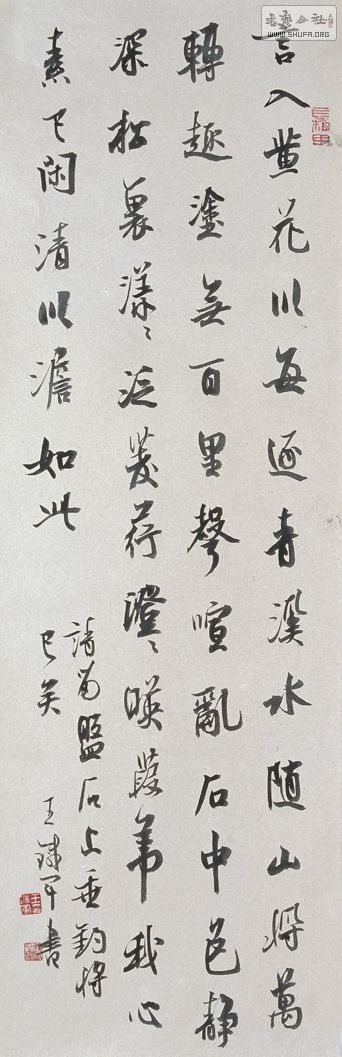 言入黄花川每逐青溪水随山将萬
轉趣塗無百里聲喧亂石中色静
深松裏漾〻泛菱荇澄〻暎葭葦我心
素已闲清川澹如此
請留盤石上垂釣将
已矣
王 書
書藝公社
WWW.SHUFA.ORG